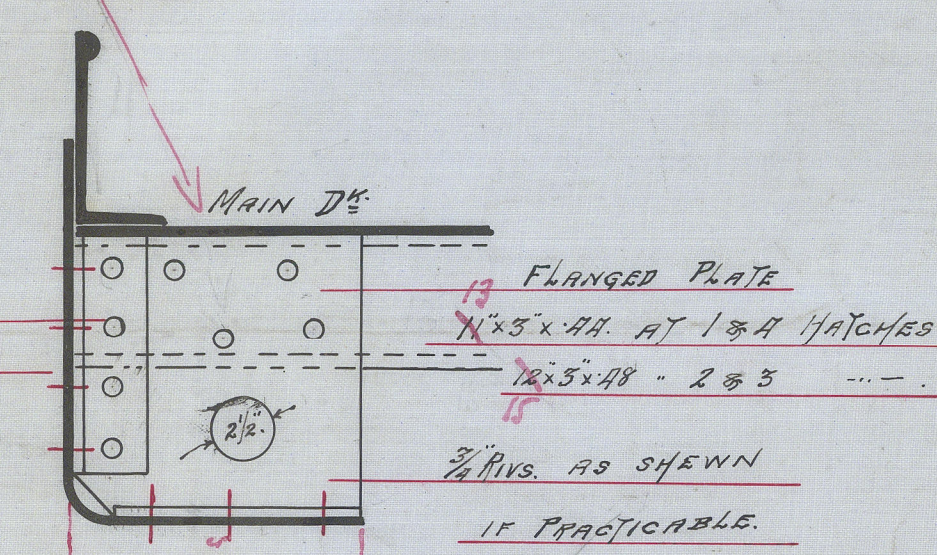 MAIN DK.
FLANGED PLATE
13
11" x 3" x .44. AT 1 & 4 HATCHES
12" x 3" x .48 " 2 & 3 -··- .
15
2 1/2".
3/4" RIVS. AS SHEWN
IF PRACTICABLE.
5